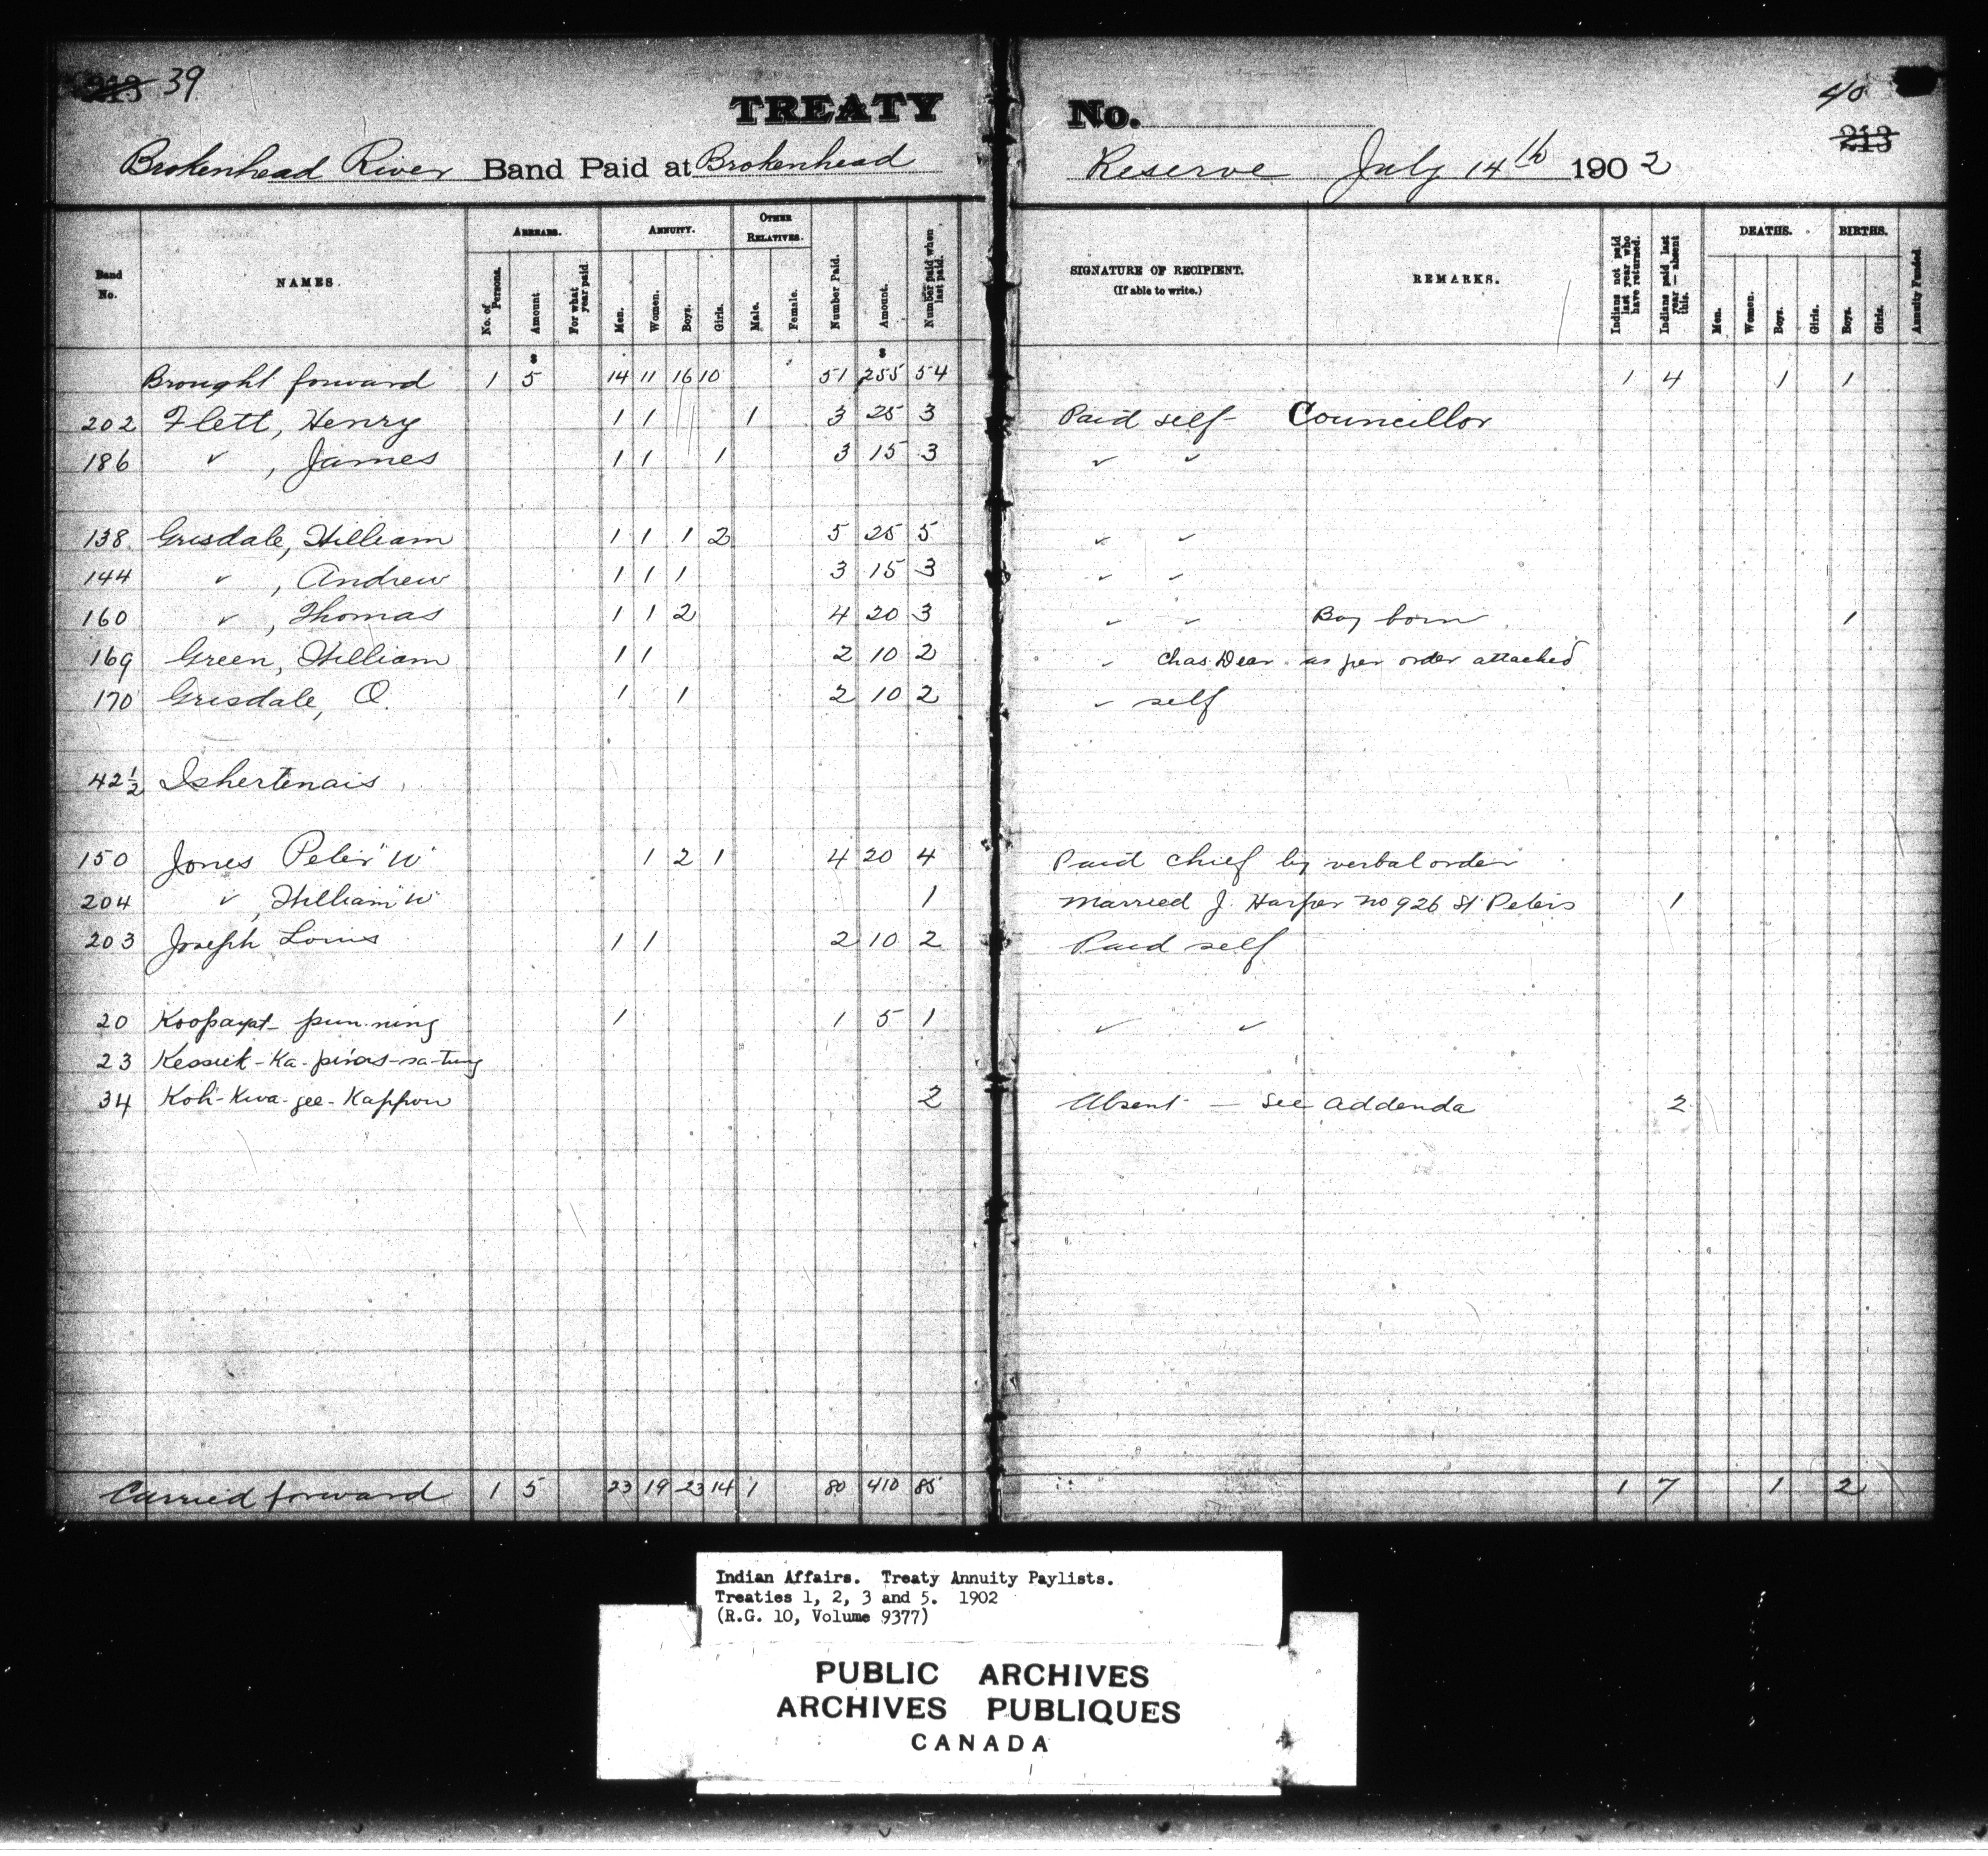 213 39
TREATY No.
40
213
Brokenhead River Band Paid at Brokenhead Reserve July 14th 1902
Band No. NAMES. ARREARS. No. of Persons. Amount For what year paid. ANNUITY. Men. Women. Boys. Girls. OTHER RELATIVES. Male. Female. Number Paid. Amount. Number paid when last paid. SIGNATURE OF RECIPIENT. (If able to write.) REMARKS. Indians not paid last year who have returned. Indians paid last year — absent this. DEATHS. Men. Women. Boys. Girls. BIRTHS. Boys. Girls. Annuity Funded.
$ $
Brought forward 1 5 14 11 16 10 51 255 54 1 4 1 1
202 Flett, Henry 1 1 1 3 25 3 Paid self Councillor
186 " , James 1 1 1 3 15 3 " "
138 Grisdale, William 1 1 1 2 5 25 5 " "
144 " , Andrew 1 1 1 3 15 3 " "
160 " , Thomas 1 1 2 4 20 3 " " Boy born 1
169 Green, William 1 1 2 10 2 " Chas. Dear as per order attached
170 Grisdale, O. 1 1 2 10 2 " self
42½ Ishertenais
150 Jones Peter "W" 1 2 1 4 20 4 Paid Chief by verbal order
204 " , William "W" 1 Married J. Harper no 926 St Peters 1
203 Joseph Louis 1 1 2 10 2 Paid self
20 Koopayat-pun-ning 1 1 5 1 " "
23 Kessick-Ka-pinas-sa-tung
34 Koh-Kwa-gee-Kappow 2 Absent — See addenda 2
Carried forward 1 5 23 19 23 14 1 80 410 85 1 7 1 2
Indian Affairs. Treaty Annuity Paylists.
Treaties 1, 2, 3 and 5. 1902
(R.G. 10, Volume 9377)
PUBLIC ARCHIVES
ARCHIVES PUBLIQUES
CANADA